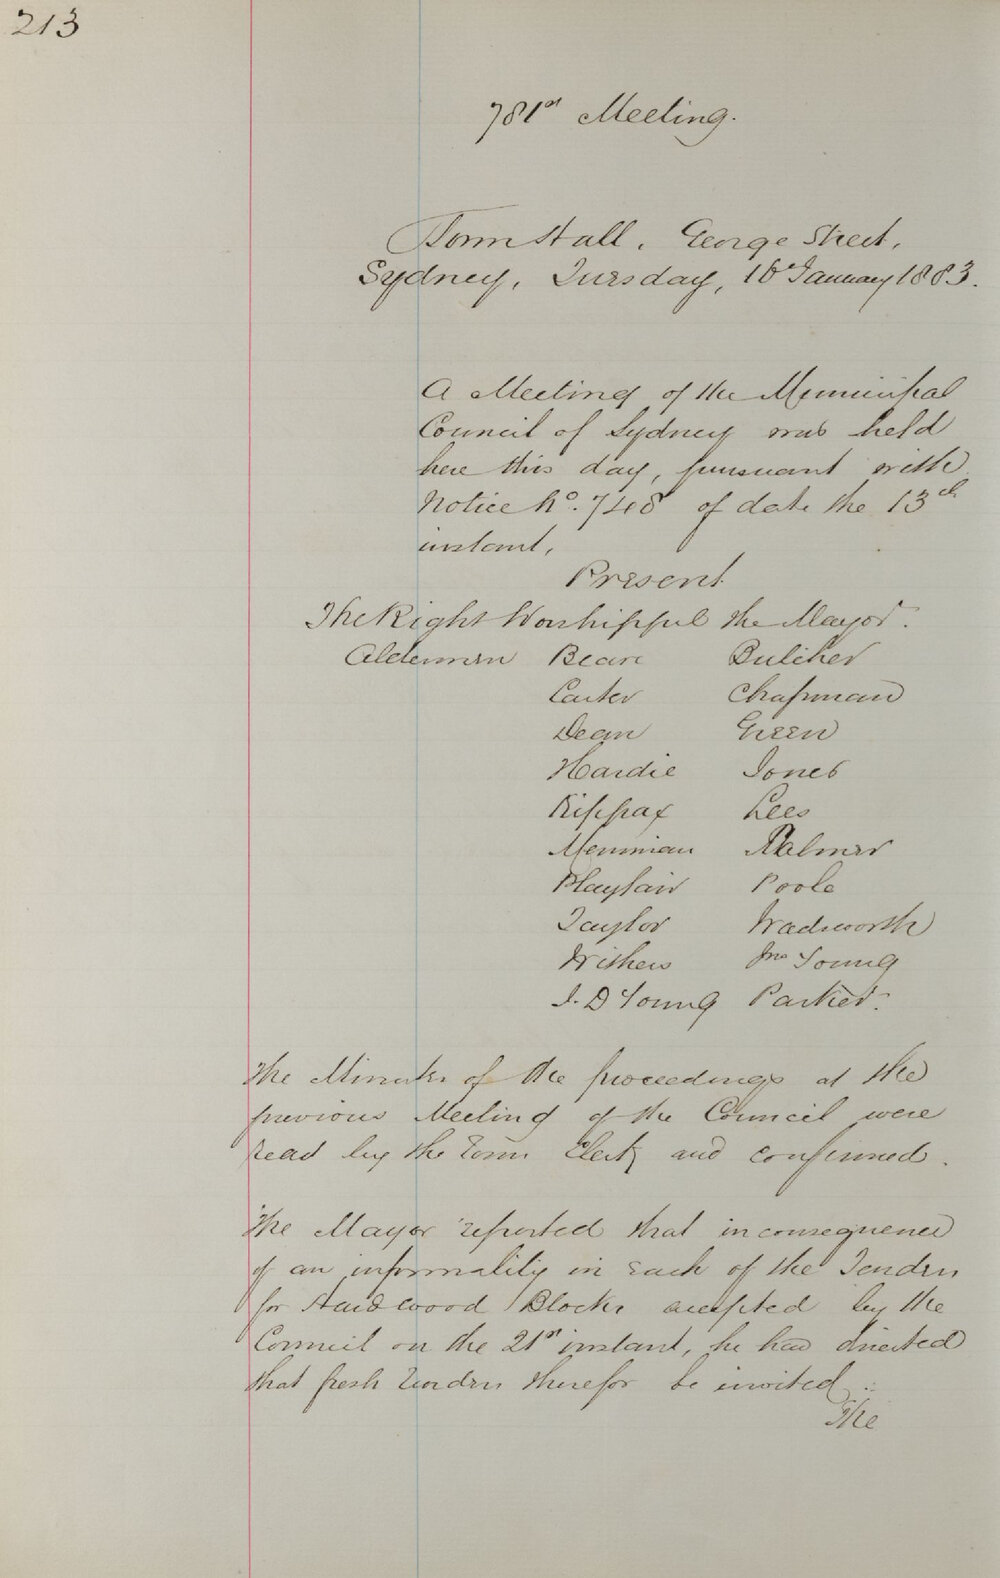 213
781st Meeting.
Town Hall, George Street,
Sydney, Tuesday, 16th January 1883.
A Meeting of the Municipal
Council of Sydney was held
here this day, pursuant with
Notice No. 748 of date the 13th
instant,
Present
The Right Worshipful the Mayor.
Aldermen Beare Butcher
Carter Chapman
Dean Green
Hardie Jones
Kippax Lees
Merriman Palmer
Playfair Poole
Taylor Wadsworth
Withers Jno Young
J. D Young Parker.
The Minutes of the proceedings at the
previous Meeting of the Council were
read by the Town Clerk and confirmed.
The Mayor reported that in consequence
of an informality in each of the Tenders
for Hardwood Blocks accepted by the
Council on the 21st instant, he had directed
that fresh Tenders therefor be invited.
The